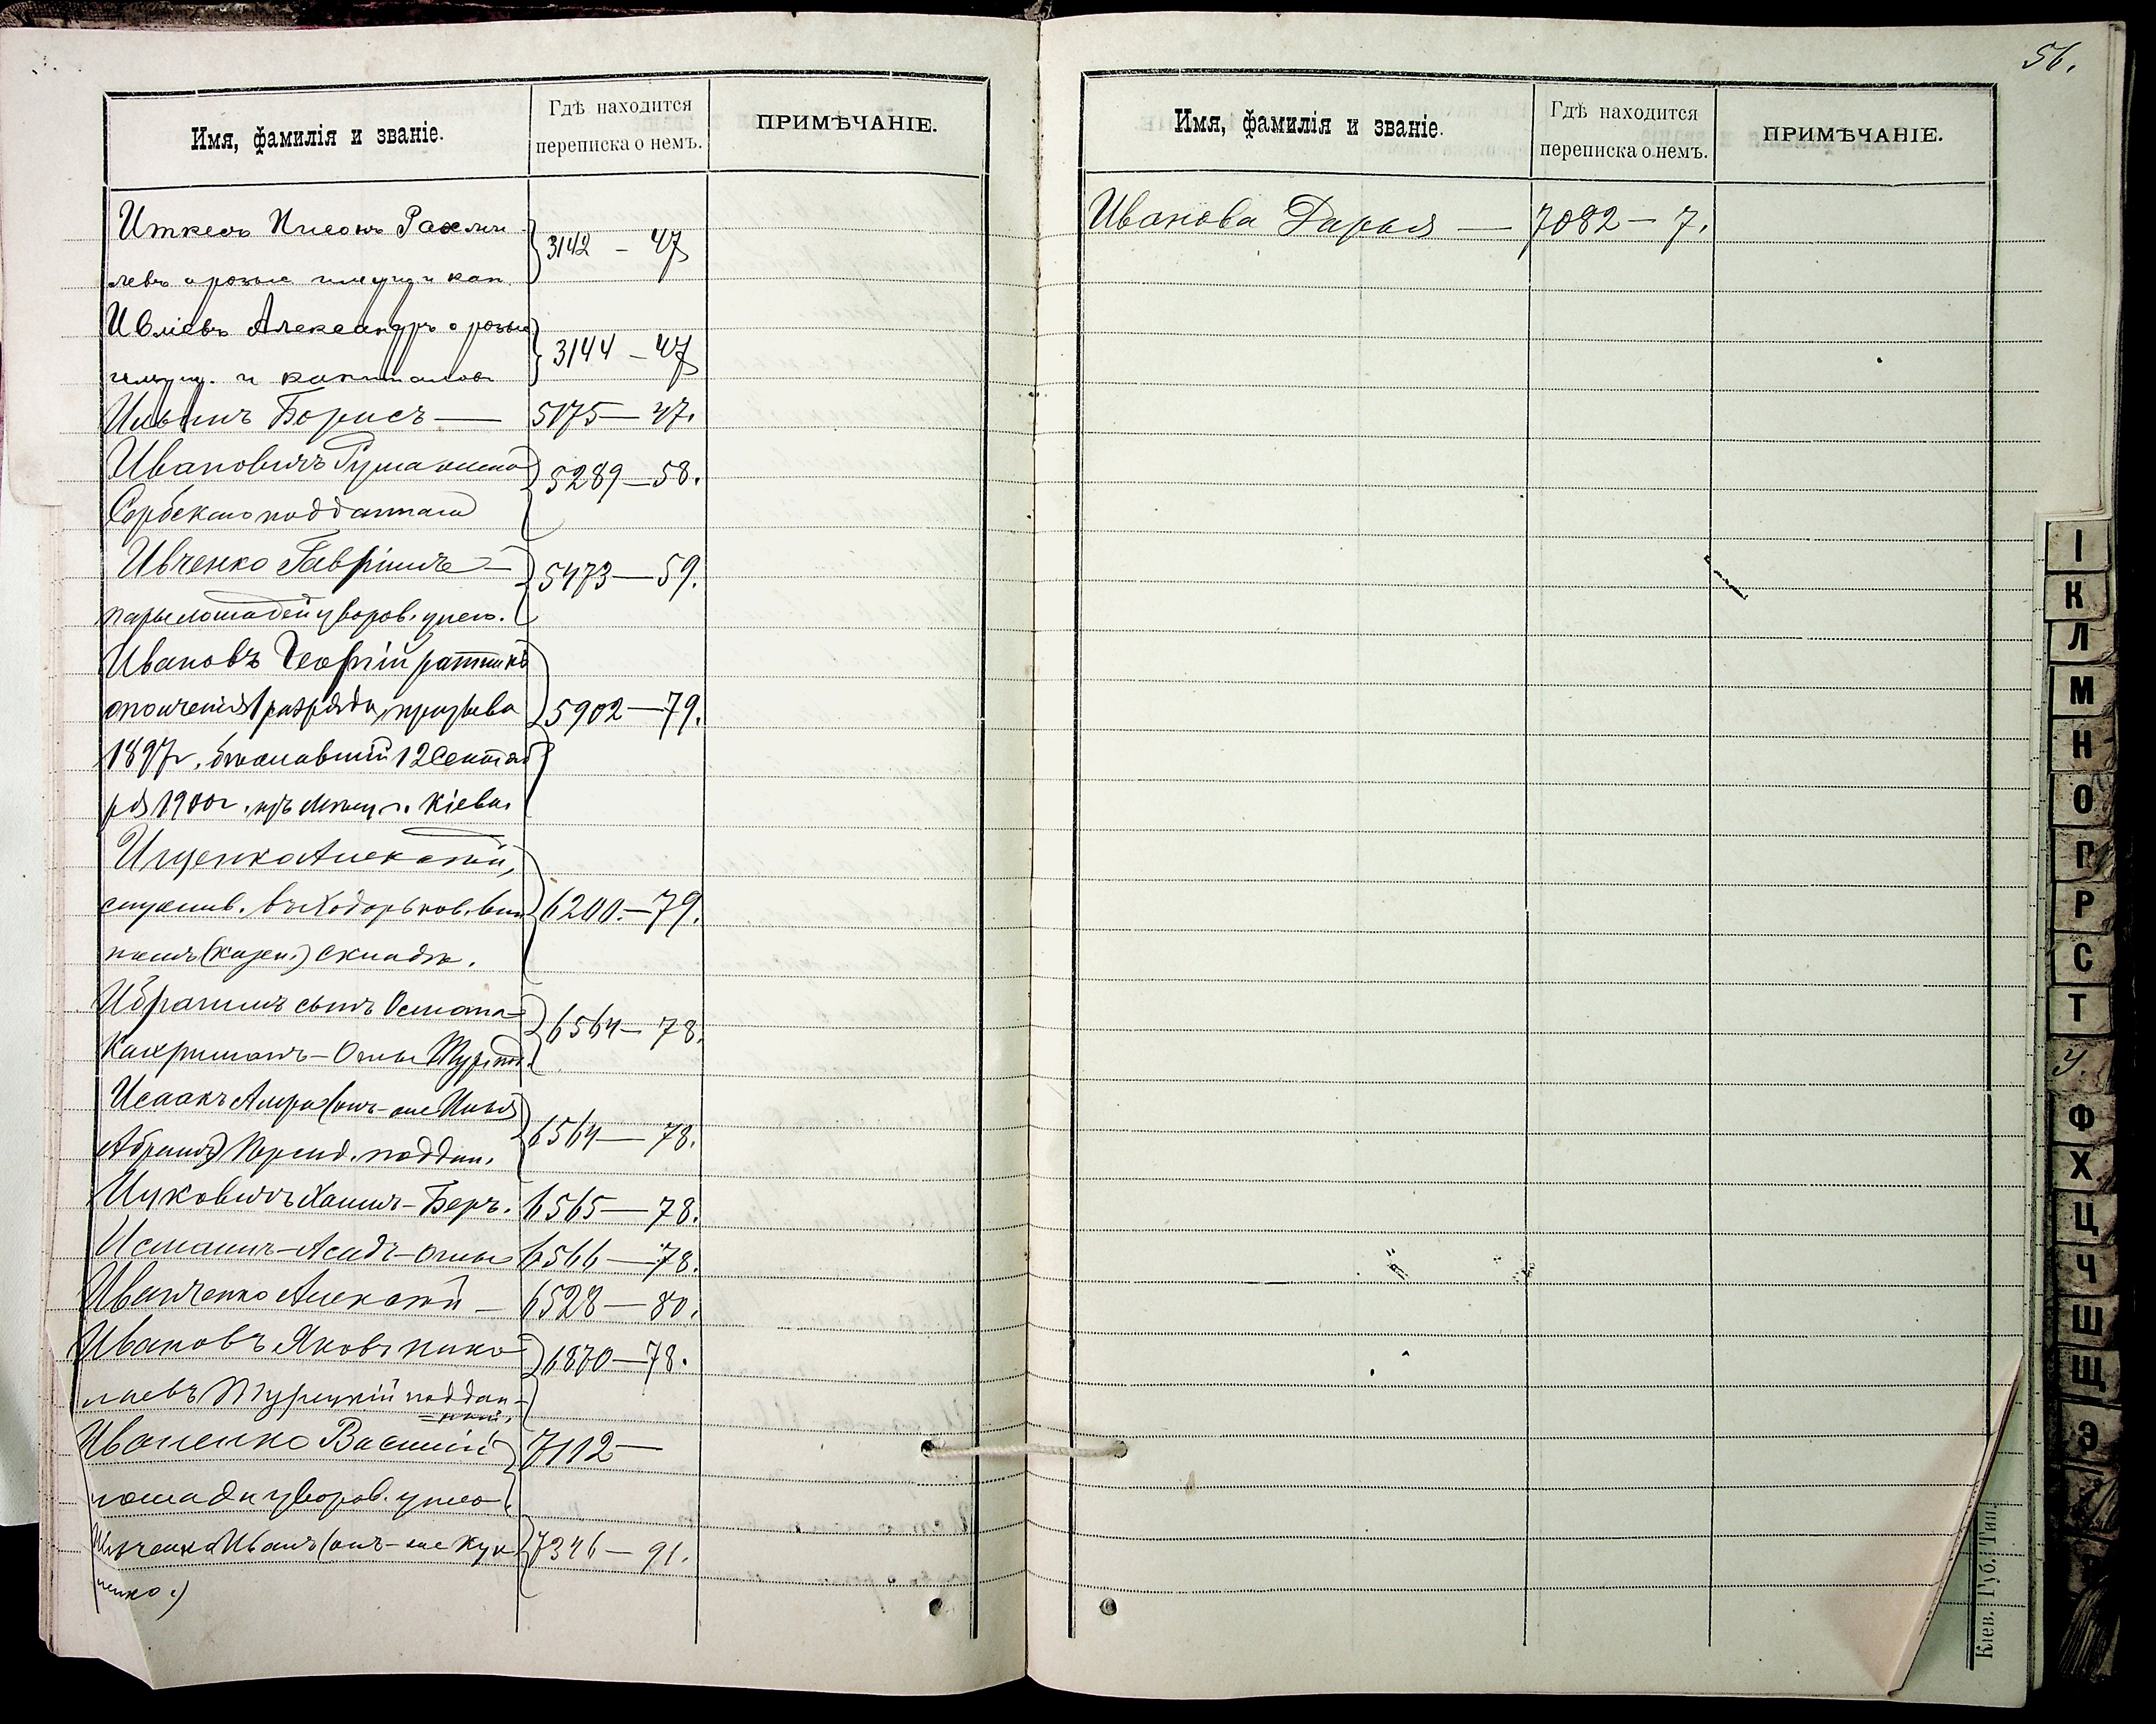 56.
Имя, фамилія и званіе.
Гдѣ находится
переписка о немъ.
ПРИМѢЧАНІЕ.
Иткесъ Нисонъ Рахми
левъ о розыс имущ и кап.
3142 – 47
Ивліевъ Александръ о розыс
имущ. и капиталовъ
3144 – 47
Ильинъ Борисъ — 5175 — 47.
Ивановичъ
Сербскаго подданнаго
5289 — 58.
Ивченко Гавріилъ —
пары лошадей уворов. у него.
5473 — 59.
Ивановъ Георгій ратникъ
ополченія 1 разряда, призыва
1897 г., бѣжавшій 12 Сентяб
ря 1900 г. изъ г. Кіева.
5902 — 79.
Ищенко Алексѣй,
служив. въ Ходорков. вин
номъ (казен.) складѣ.
6200. — 79.
Ибрагимъ сынъ Османа-
Кахриманъ-Оглы Турц. под.
6564 — 78.
Исаакъ (онъ-же Илья
Абрамъ) Персид. поддан.
6564 — 78.
Ицковичъ Хаимъ-Беръ. 6565 — 78.
Исмаилъ-Асадъ-Оглы 6566 — 78.
Иванченко Алексѣй — 6528 — 80.
Ивановъ Яковъ Нико
лаевъ Турецкій поддан-
=ный.
6870 — 78.
Иваненко Василій
лошади уворов. у него.
7112 —
Ильченко Иванъ (онъ-же Кук
ненко.)
7346 — 91.
Имя, фамилія и званіе.
Гдѣ находится
переписка о немъ.
ПРИМѢЧАНІЕ.
Иванова Дарья — 7082 — 7.
І
К
Л
М
Н
О
П
Р
С
Т
У.
Ф
Х
Ц
Ч
Ш
Щ
Э
Кіев. Губ. Тип.